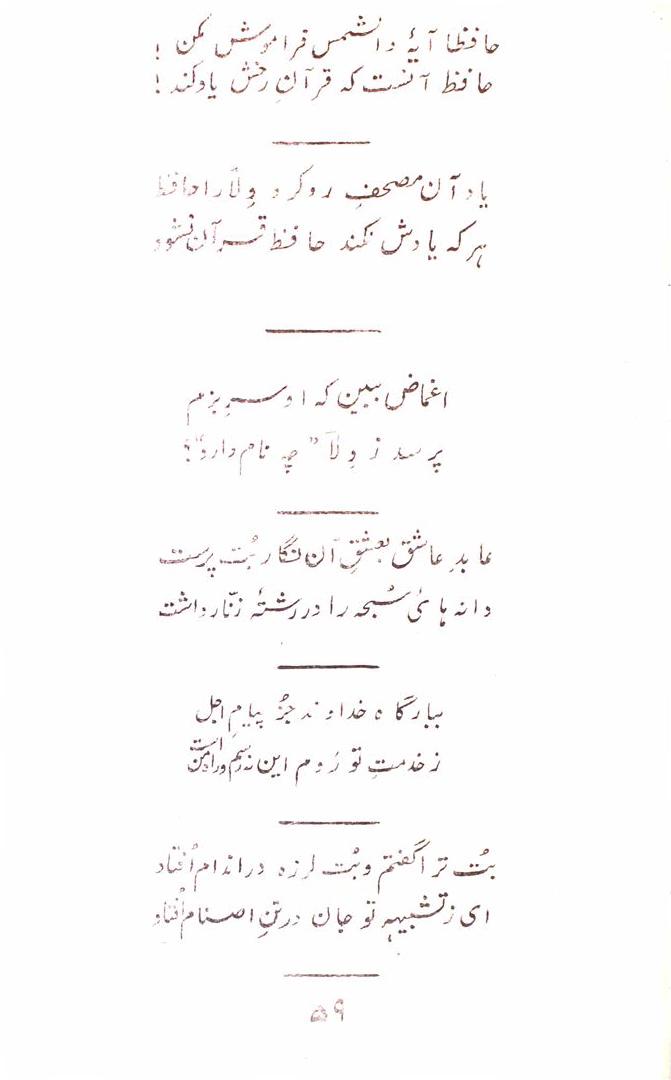 حافظا آیهٔ والشمس فراموش مکن !
حافظ آنست که قرآنِ رخش یاد کند !
یاد آن مصحفِ رو کرد وِلآ را حافظ
هر که یادش نکند حافظ قرآن نشود
اغماض ببین که او سرِ بزم
پرسد ز وِلآ "چه نام دارد"؟
عابدِ عاشق بعشقِ آن نگار بُت پرست
دانه هائ سُبحه را در رشتهٔ زنّار داشت
ببارگاه خداوند جُز پیامِ اجل
ز خدمتِ تو رَوم این نه رسم و راه من است
بُت ترا گفتم و بُت لرزه در اندام اُفتاد
ای ز تشبیهِ تو جان در تنِ اصنام اُفتاد
۵۹